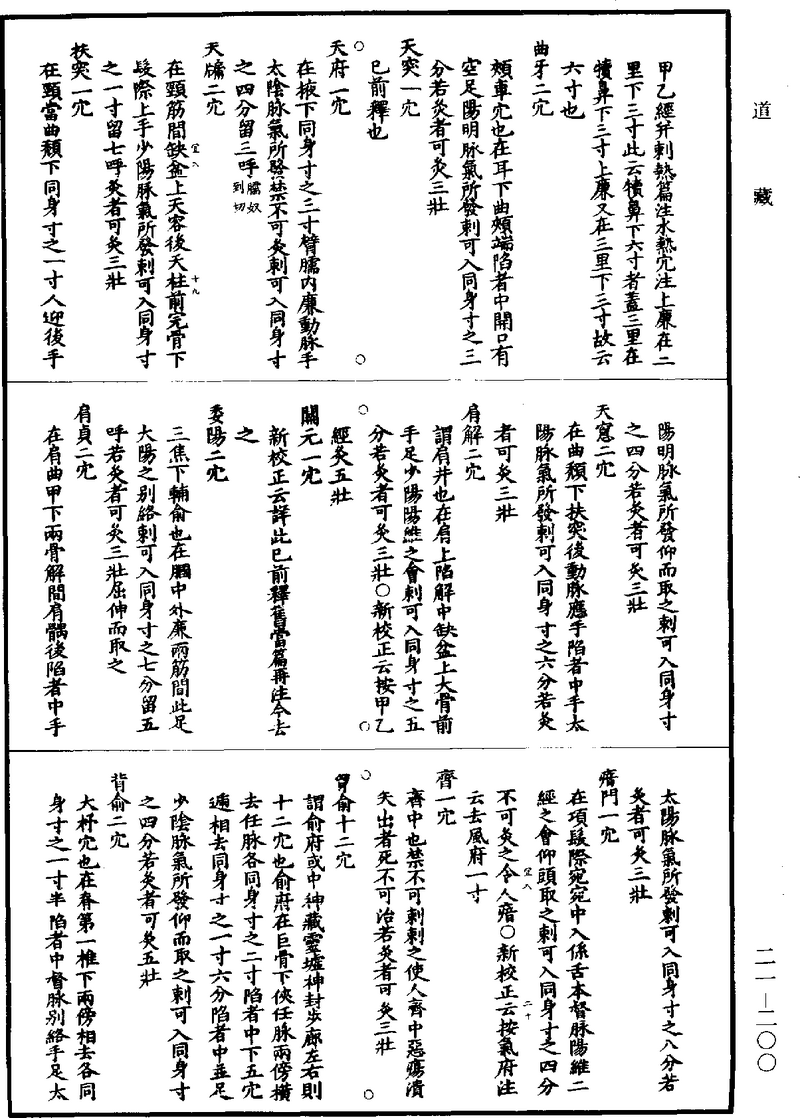 道藏
甲乙經并刺熱篇注水熱穴注上廉在二
里下三寸此云犢鼻下六寸者蓋三里在
犢鼻下三寸上廉又在三里下三寸故云
六寸也
曲牙二穴
頰車穴也在耳下曲頰端陷者中開口有
空足陽明脉氣所發刺可入同身寸之三
分若灸者可灸三壯
天突一穴
已前釋也
天府一穴
在掖下同身寸之三寸臂臑內廉動脉手
太陰脉氣所發禁不可灸刺可入同身寸
之四分留三呼臑奴到切
天牖二穴
在頸筋間缺盆上天容後天柱前完骨下
髮際上手少陽脉氣所發刺可入同身寸
之一寸留七呼灸者可灸三壯
扶突一穴
在頸當曲頰下同身寸之一寸人迎後手
陽明脉氣所發仰而取之刺可入同身寸
之四分若灸者可灸三壯
天窻二穴
在曲頰下扶突後動脉應手陷者中手太
陽脉氣所發刺可入同身寸之六分若灸
者可灸三壯
肩解二穴
謂肩井也在肩上陷解中缺盆上大骨前
手足少陽陽維之會刺可入同身寸之五
分若灸者可灸三壯○新校正云按甲乙
經灸五壯
關元一穴
新校正云詳此已前釋舊當篇再注今去
之
委陽二穴
三焦下輔俞也在膕中外廉兩筋間此足
大陽之別絡刺可入同身寸之七分留五
呼若灸者可灸三壯屈伸而取之
肩貞二穴
在肩曲甲下兩骨解間肩髃後陷者中手
太陽脉氣所發刺可入同身寸之八分若
灸者可灸三壯
瘖門一穴
在項髮際宛宛中入係舌本督脉陽維二
經之會仰頭取之刺可入同身寸之四分
不可灸之令人瘖○新校正云按氣府注
云去風府一寸
齊一穴
齊中也禁不可刺刺之使人齊中惡瘍潰
矢出者死不可治若灸者可灸三壯
胷俞十二穴
謂俞府或中神藏靈墟神封步廊左右則
十二穴也俞府在巨骨下俠任脉兩傍橫
去任脉各同身寸之二寸陷者中下五穴
遞相去同身寸之一寸六分陷者中並足
少陰脉氣所發仰而取之刺可入同身寸
之四分若灸者可灸五壯
背俞二穴
大杼穴也在脊第一椎下兩傍相去各同
身寸之一寸半陷者中督脉別絡手足太
二一—二〇〇